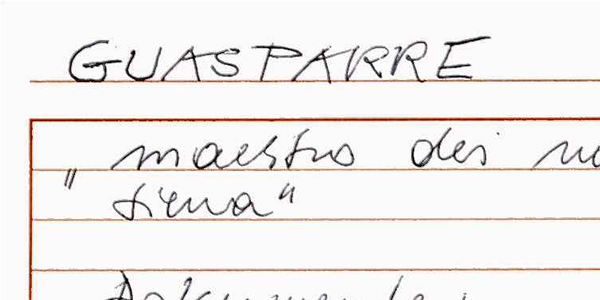 GUASPARRE
„ maestro dei
siena“